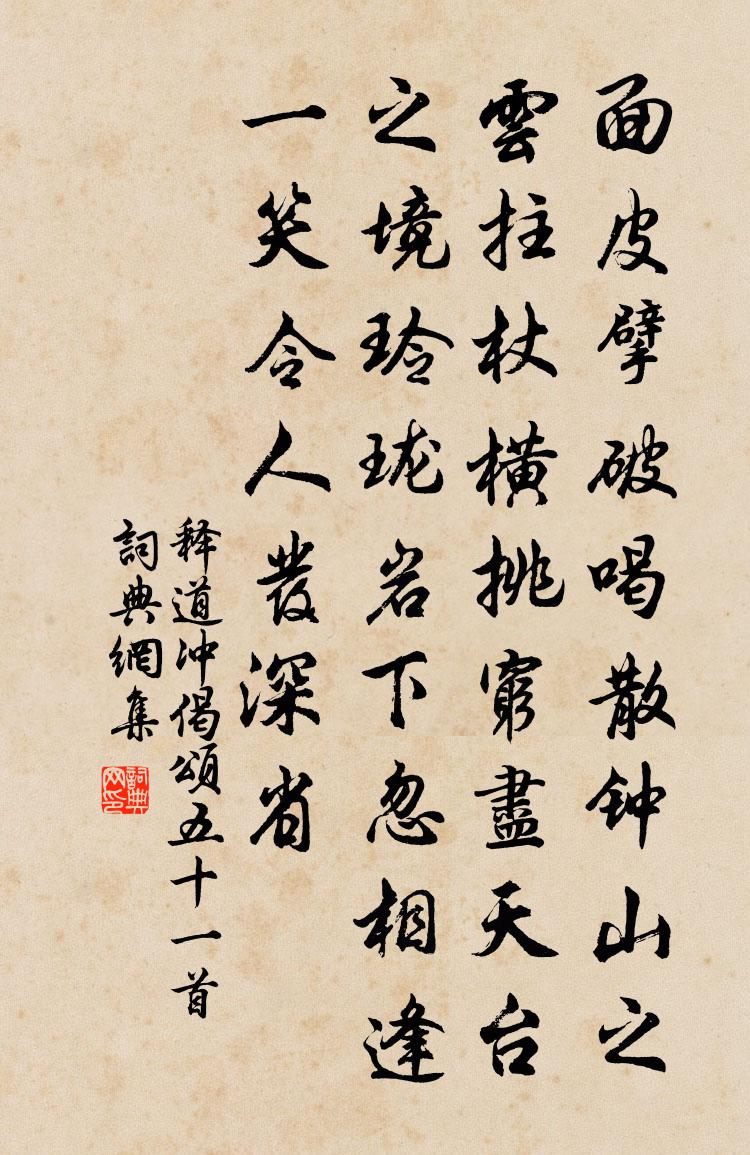 面皮擘破喝散钟山之
雲拄杖橫挑窮盡天台
之境玲珑岩下忽相逢
一笑令人發深省
释道冲偈頌五十一首
詞典網集
詞典网印